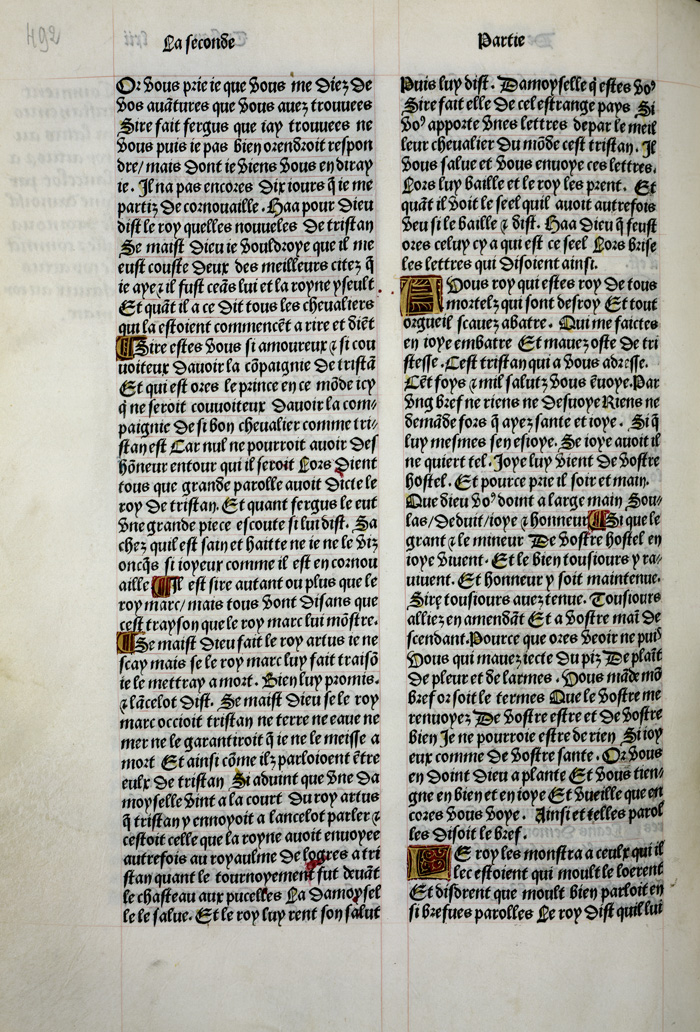 492
La seconde
Partie
Or vous prie ie que vous me diez de
vos auātures que vous auez trouuees
Sire fait fergus que iay trouuees ne
vous puis ie pas bien orendroit respon
dre/ mais dont ie viens vous en diray
ie. Il na pas encores dix iours q̄ ie me
partiz de cornouaille. Haa pour dieu
dist le roy quelles nouueles de tristan
Se maist dieu ie vouldroye que il me
eust couste deux des meilleurs citez q̄
ie aye ⁊ il fust ceās lui et la royne yseult
Et quāt il a ce dit tous les cheualiers
qui la estoient commencēt a rire et diēt
Sire estes vous si amoureux ⁊ si cou
uoiteux dauoir la cōpaignie de tristā
Et qui est ores le prince en ce mōde icy
q̄ ne seroit couuoiteux dauoir la com⸗
paignie de si bon cheualier comme tri⸗
stan est Car nul ne pourroit auoir des
hōneur entour qui il seroit Lors dient
tous que grande parolle auoit dicte le
roy de tristan. Et quant fergus le eut
vne grande piece escoute si lui dist. Sa
chez quil est sain et haitte ne ie ne le viz
oncq̄s si ioyeux comme il est en cornou
aille Il est sire autant ou plus que le
roy marc/ mais tous vont disans que
cest trayson que le roy marc lui mōstre.
Se maist dieu fait le roy artus ie ne
scay mais se le roy marc luy fait traisō
ie le mettray a mort. Bien luy promis.
⁊ lācelot dist. Se maist dieu se le roy
marc occioit tristan ne terre ne eaue ne
mer ne le garantiroit q̄ ie ne le meisse a
mort Et ainsi cōme ilz parloioent ētre
eulx de tristan Si aduint que vne da
moyselle vint a la court du roy artus
q̄ tristan y ennoyoit a lancelot parler ⁊
cestoit celle que la royne auoit enuoyee
autrefois au royaulme de logres a tri
stan quant le tournoyement fut deuāt
le chasteau aux pucelles La damoysel
le le salue. Et le roy luy rent son salut
Puis luy dist. Damoyselle q̄ estes voꝰ
Sire fait elle de cel estrange pays Si
voꝰ apporte vnes lettres depar le meil
leur cheualier du mōde cest tristan. Il
vous salue et vous enuoye ces lettres.
Lors luy baille et le roy les prent. Et
quāt il voit le seel quil auoit autrefois
veu si le baille ⁊ dist. Haa dieu q̄ feust
ores celuy cy a qui est ce seel Lors brise
les lettres qui disoient ainsi.
A Vous roy qui estes roy de tous
mortelz qui sont desroy Et tout
orgueil scauez abatre. Qui me faictes
en ioye embatre Et mauez oste de tri
stesse. Cest tristan qui a vous adresse.
Cēt foys ⁊ mil salutz vous ēuoye. Par
vng bref ne riens ne desuoye Riens ne
demāde fors q̄ ayez sante et ioye. Si q̄
luy mesmes sen esioye. Se ioye auoit il
ne quiert tel. Ioye luy vient de vostre
hostel. Et pource prie il soir et main.
Que dieu voꝰ doint a large main Sou⸗
las/ deduit/ ioye ⁊ honneur Si que le
grant ⁊ le mineur De vostre hostel en
ioye viuent. Et le bien tousiours y ra⸗
uiuent. Et honneur y soit maintenue.
Sire tousiours auez tenue. Tousiours
alliez en amendāt Et a vostre main de
scendant. Pource que ores veoir ne puis
Vous qui mauez iecte du piz De plaīt
de pleur et de larmes. Vous māde mō
bref or soit le termes Que le vostre me
renuoyez De vostre estre et de vostre
bien Ie ne pourroie estre de rien Si ioy
eux comme de vostre sante. Or vous
en doint dieu a plante Et vous tien⸗
gne en bien et en ioye Et vueille que en
cores vous voye. Ainsi et telles parol
les disoit le bref.
LE roy les monstra a ceulx qui il
lec estoient qui moult le loerent
Et disdrent que moult bien parloit en
si brefues parolles Le roy dist quil lui